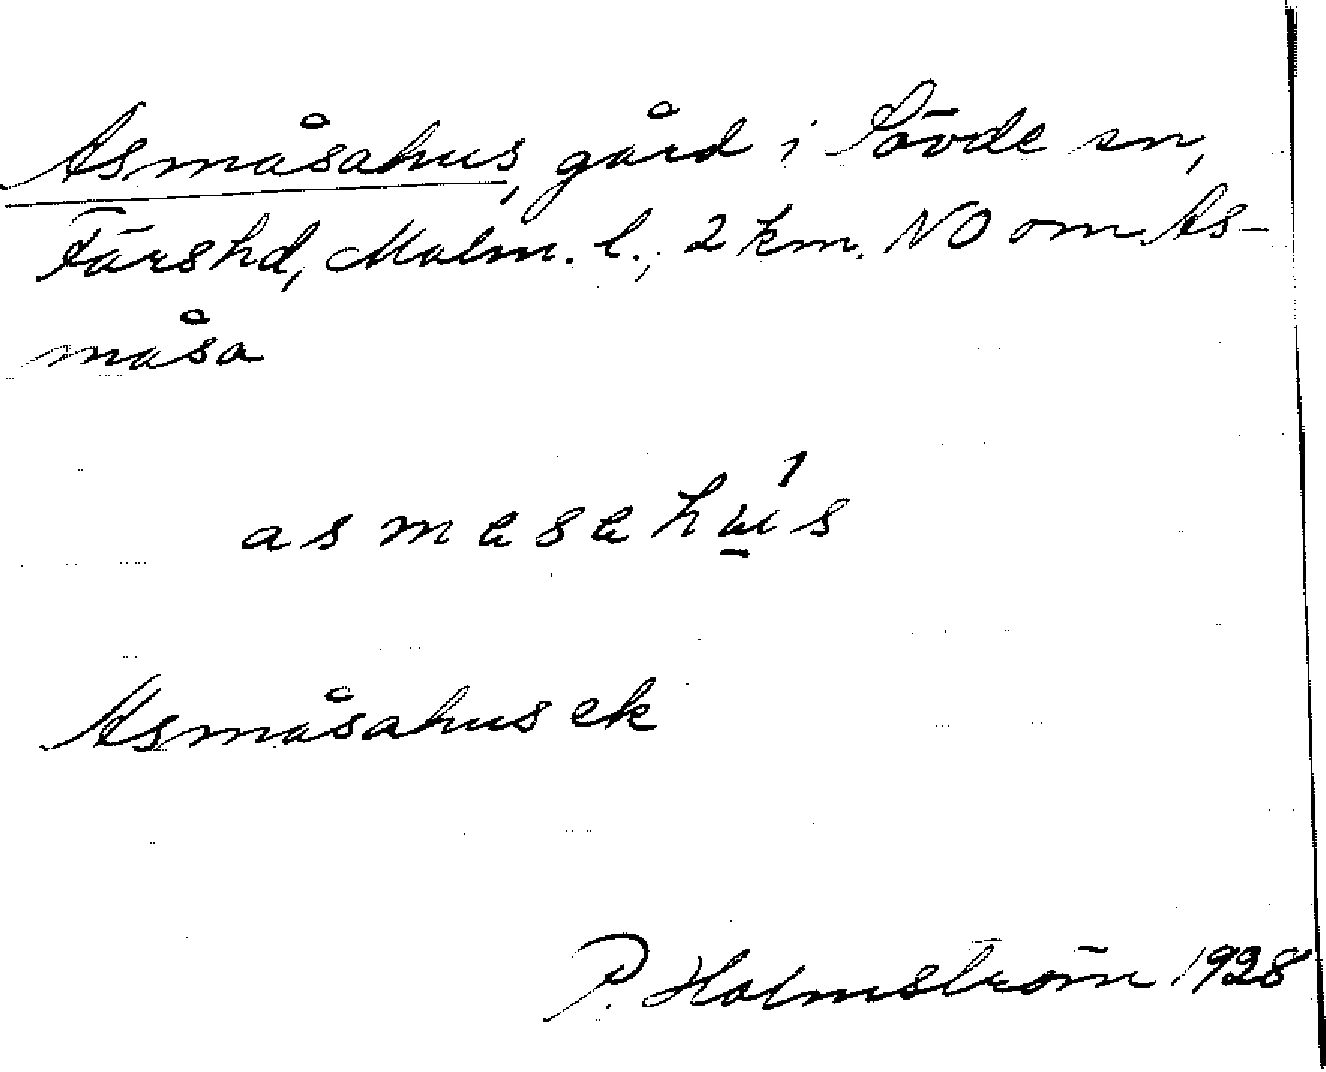 Asmåsahus, gård i Sövde sn,
Färs hd, Malm. l., 2 km. NO om As-
måsa
asmasahus
Asmåsahus ek
P. Holmström 1928